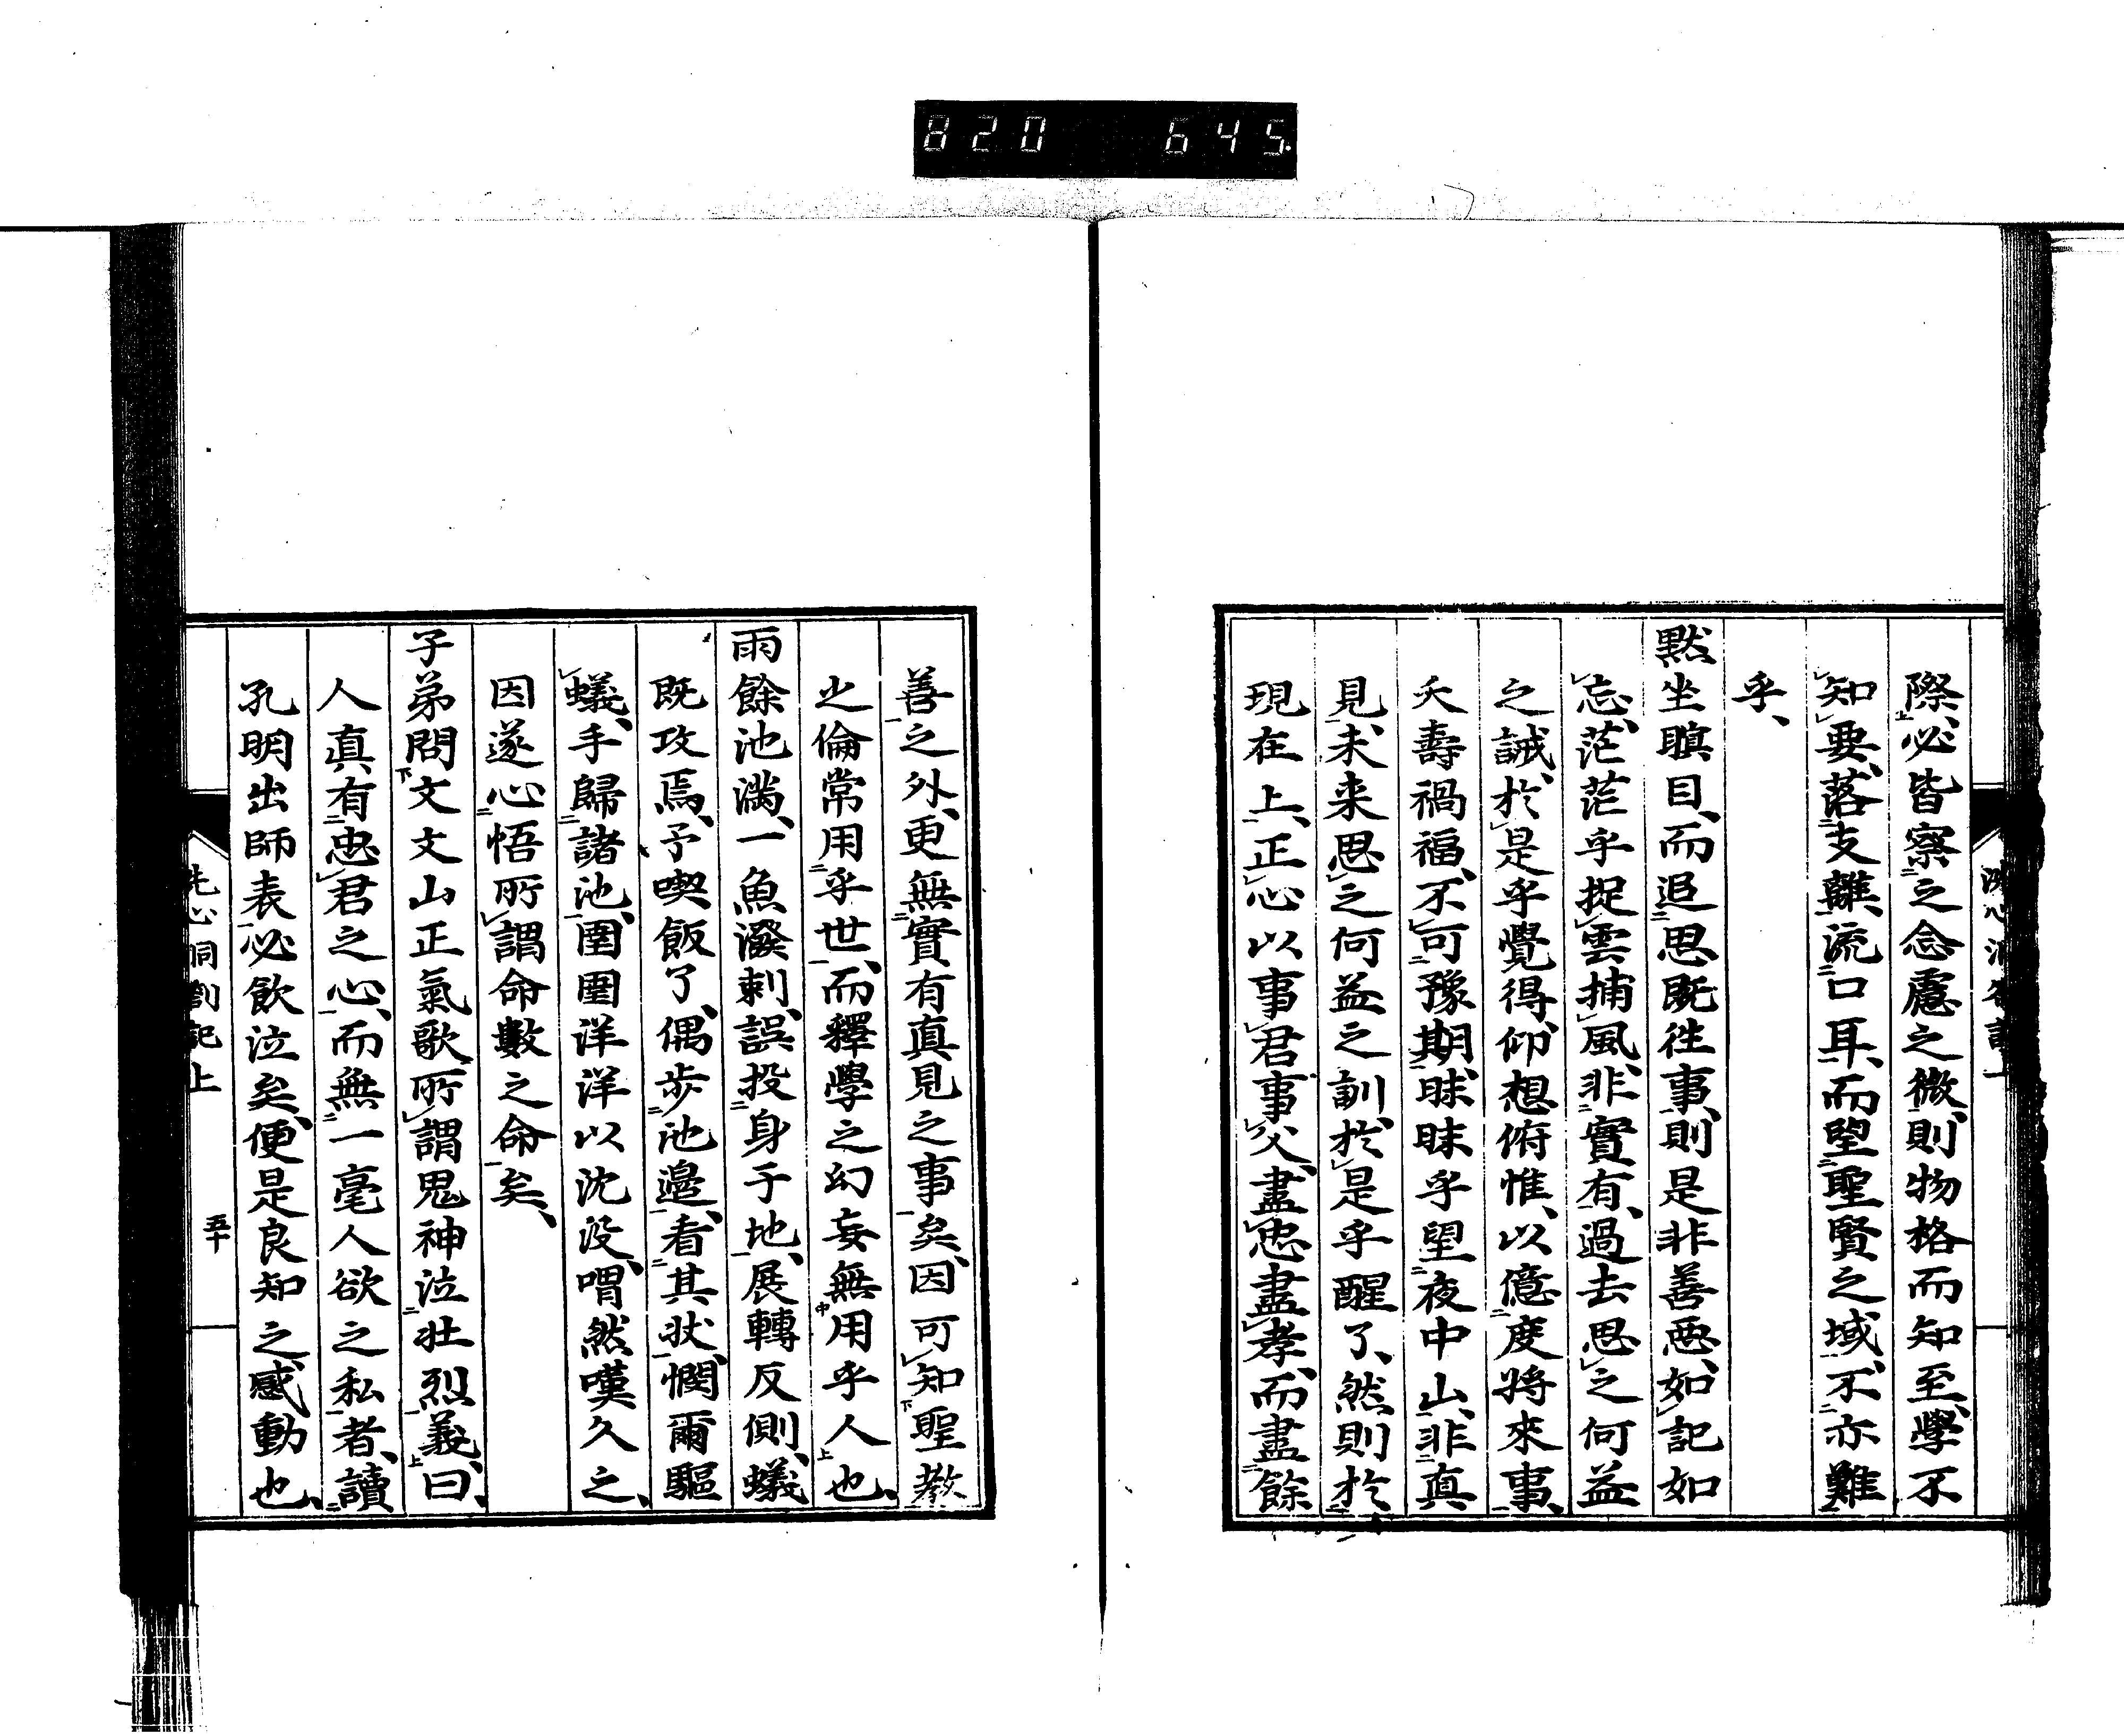 820 645
際、必皆察之念慮之微、則物格而知至、學不
知要、落支離、流口耳、而望聖賢之域、不亦難
乎、
默坐瞑目、而追思既往事、則是非善惡、如記如
忘、茫茫乎捉雲捕風、非實有、過去思之何益
之誡、於是乎覺得、仰想俯惟、以億度將來事、
夭壽禍福、不可豫期、眛眛乎望夜中山、非真
見、未来思之何益之訓、於是乎醒了、然則於
現在上、正心以事君事父、盡忠盡孝、而盡餘
善之外、更無實有真見之事矣、因可知聖教
之倫常用乎世、而釋學之幻妄無用乎人也、
雨餘池満、一魚潑剌、誤投身于地、展轉反側、蟻
既攻焉、予喫飯了、偶歩池邉、看其状、憫爾驅
蟻、手歸諸池、圉圉洋洋以沈没、喟然嘆久之、
因遂心悟所謂命數之命矣、
子弟問文文山正氣歌、所謂鬼神泣壮烈義、曰、
人真有忠君之心、而無一毫人欲之私者、讀
孔明出師表、必飲泣矣、便是良知之感動也、
洗心洞劄記上 五十